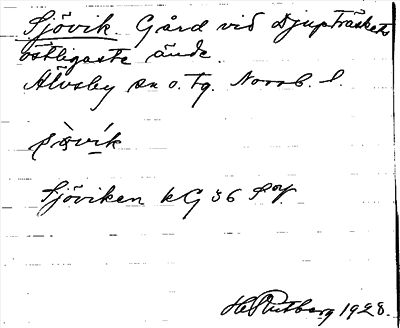 Sjövik. Gård vid Djupträskets
östligaste ände.
Älvsby sn o. tg. Norrb. l.
Sjöviken kG 36 Soy.
H Rutberg 1928.